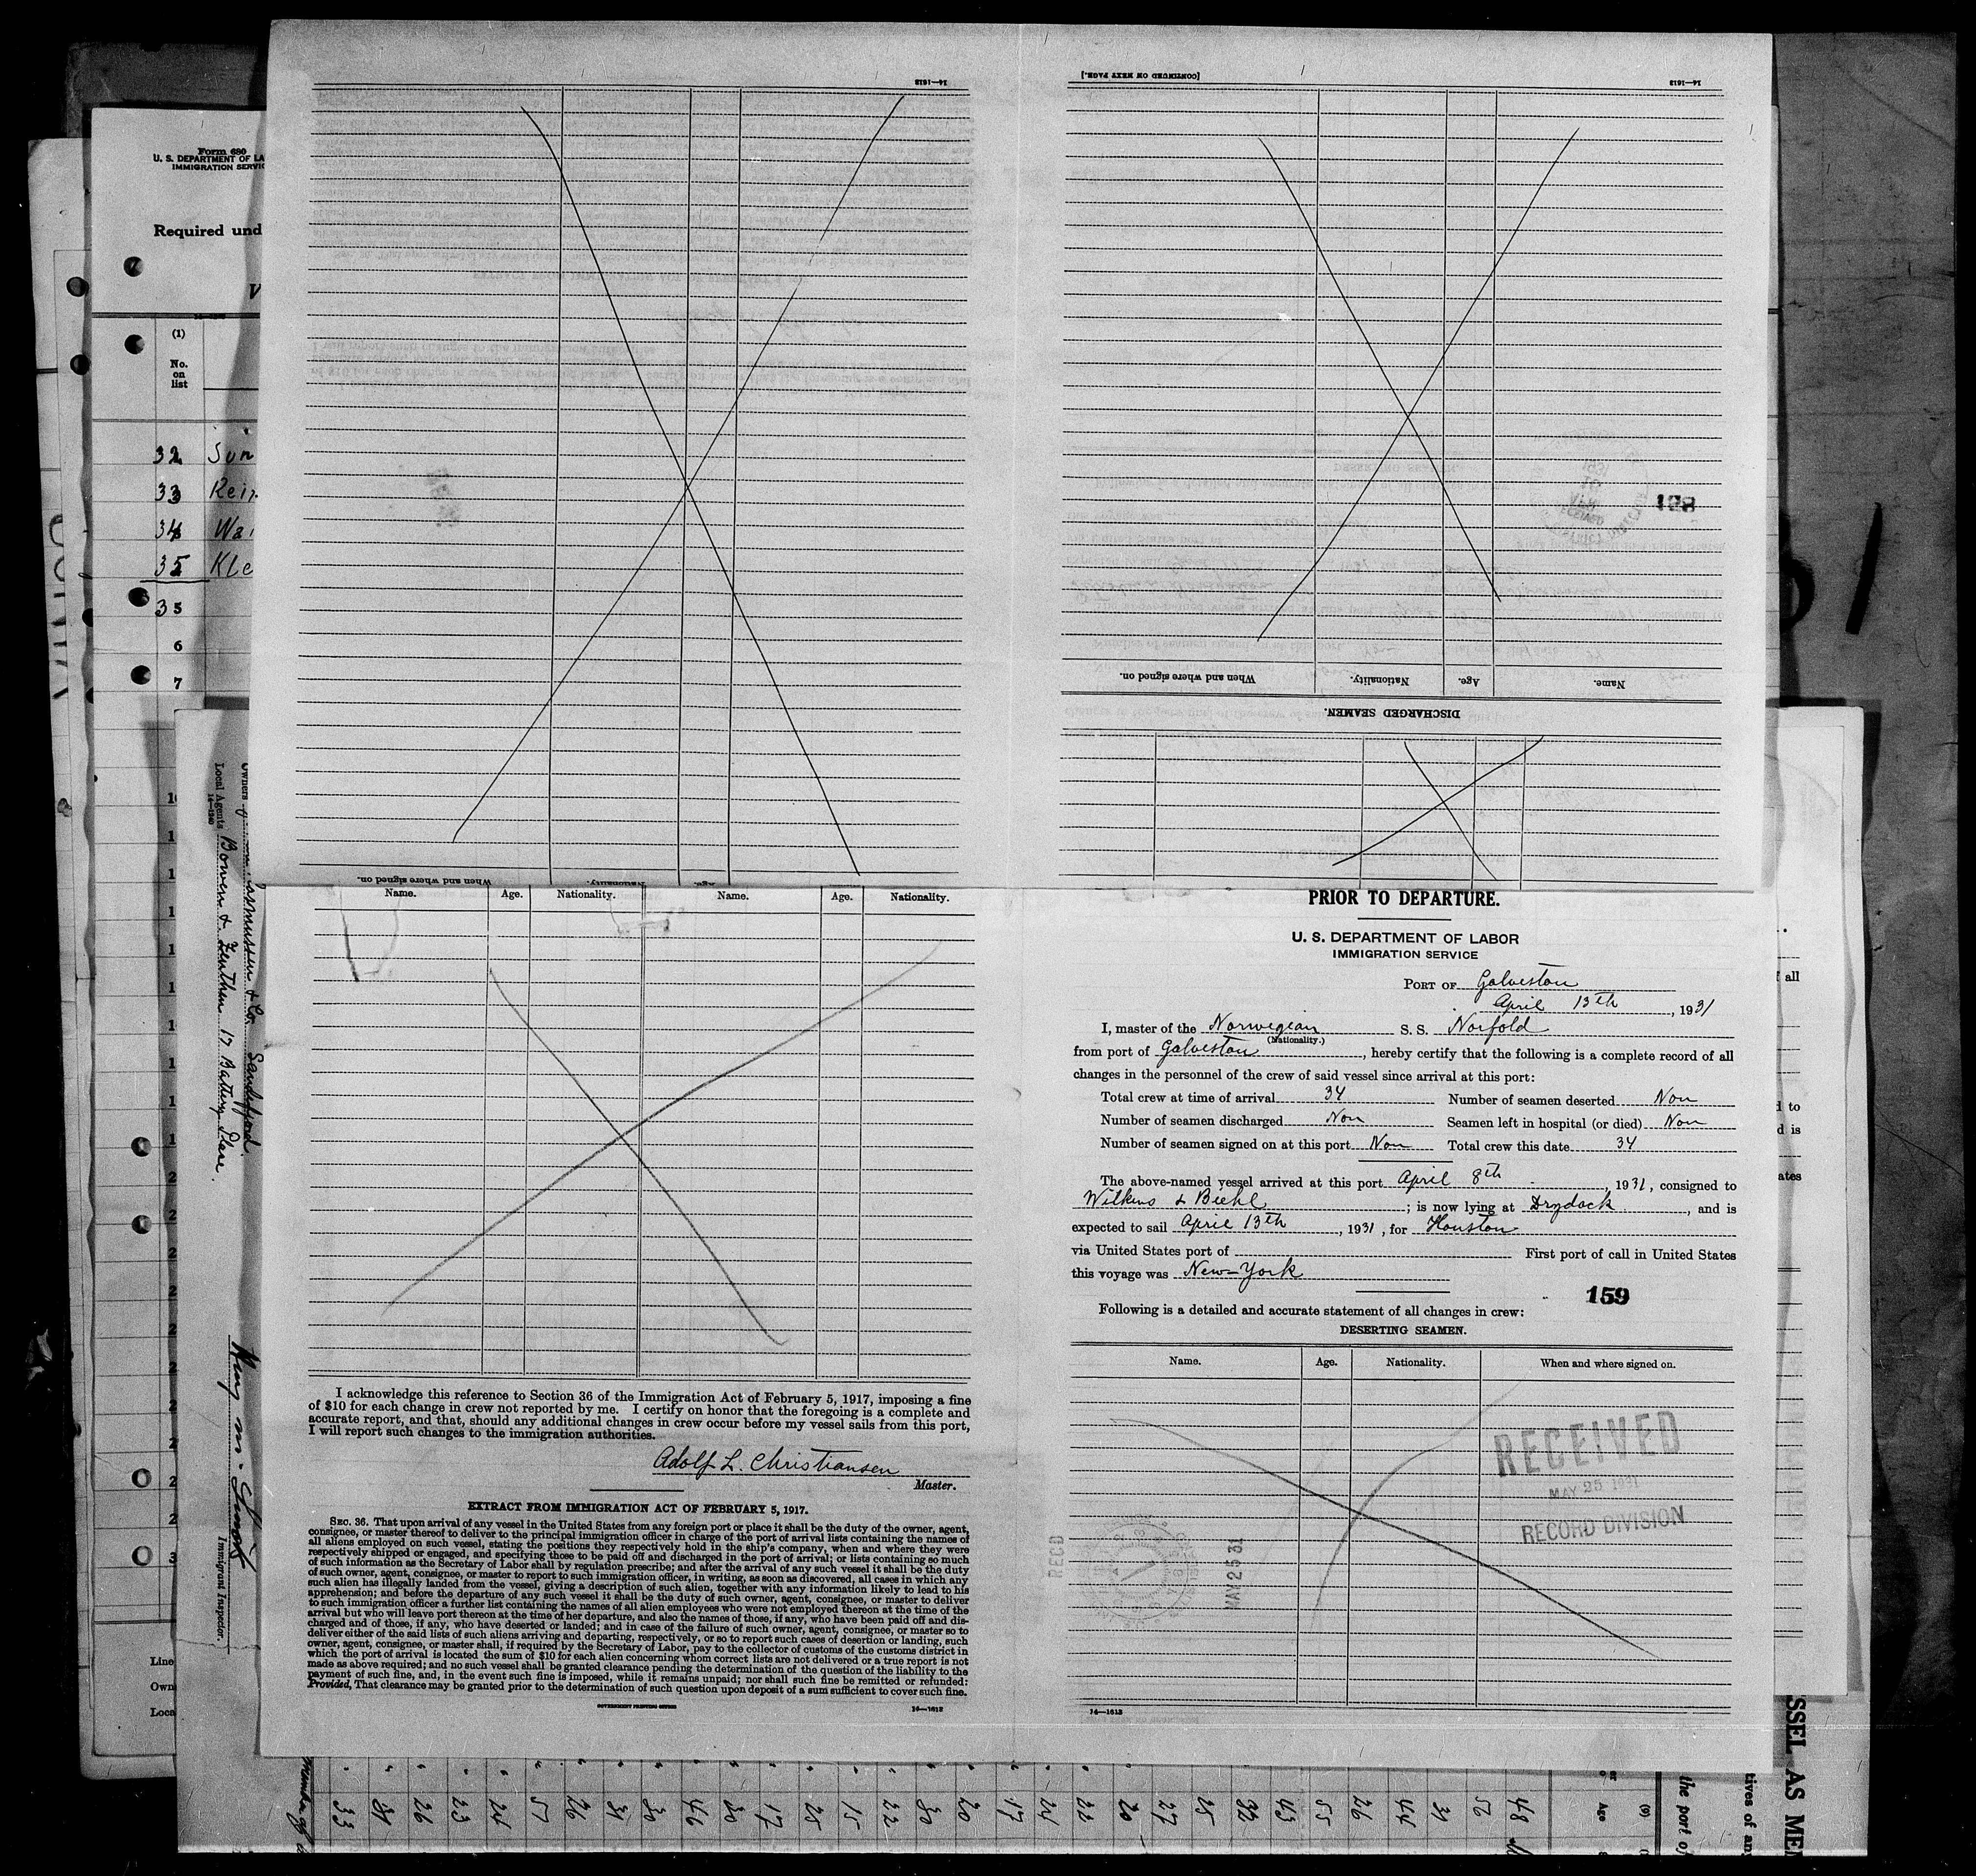 Form 680
U. S. DEPARTMENT OF LA
IMMIGRATION SERVIC
Required und
V
(1)
No.
on
list
32 Sun
33 Rein
34 Wa
35 Kle
35
6
7
Local Agents Bowen & Zenthen 17 Battery Place.
14—1240
Owners Rasmussen & Co. Sandefjord.
Immigrant Inspector.
14—1613
[CONTINUED ON NEXT PAGE.]
14—1613
128
When and where signed on.
Nationality.
Age.
Name.
DISCHARGED SEAMEN.
When and where signed on.
Nationality.
Age.
Name. Age. Nationality. Name. Age. Nationality.
I acknowledge this reference to Section 36 of the Immigration Act of February 5, 1917, imposing a fine
of $10 for each change in crew not reported by me. I certify on honor that the foregoing is a complete and
accurate report, and that, should any additional changes in crew occur before my vessel sails from this port,
I will report such changes to the immigration authorities.
Adolf L. Christiansen
Master.
EXTRACT FROM IMMIGRATION ACT OF FEBRUARY 5, 1917.
SEC. 36. That upon arrival of any vessel in the United States from any foreign port or place it shall be the duty of the owner, agent,
consignee, or master thereof to deliver to the principal immigration officer in charge of the port of arrival lists containing the names of
all aliens employed on such vessel, stating the positions they respectively hold in the ship's company, when and where they were
respectively shipped or engaged, and specifying those to be paid off and discharged in the port of arrival; or lists containing so much
of such information as the Secretary of Labor shall by regulation prescribe; and after the arrival of any such vessel it shall be the duty
of such owner, agent, consignee, or master to report to such immigration officer, in writing, as soon as discovered, all cases in which any
such alien has illegally landed from the vessel, giving a description of such alien, together with any information likely to lead to his
apprehension; and before the departure of any such vessel it shall be the duty of such owner, agent, consignee, or master to deliver
to such immigration officer a further list containing the names of all alien employees who were not employed thereon at the time of the
arrival but who will leave port thereon at the time of her departure, and also the names of those, if any, who have been paid off and dis-
charged and of those, if any, who have deserted or landed; and in case of the failure of such owner, agent, consignee, or master so to
deliver either of the said lists of such aliens arriving and departing, respectively, or so to report such cases of desertion or landing, such
owner, agent, consignee, or master shall, if required by the Secretary of Labor, pay to the collector of customs of the customs district in
which the port of arrival is located the sum of $10 for each alien concerning whom correct lists are not delivered or a true report is not
made as above required; and no such vessel shall be granted clearance pending the determination of the question of the liability to the
payment of such fine, and, in the event such fine is imposed, while it remains unpaid; nor shall such fine be remitted or refunded:
Provided, That clearance may be granted prior to the determination of such question upon deposit of a sum sufficient to cover such fine.
GOVERNMENT PRINTING OFFICE 14—1613
PRIOR TO DEPARTURE.
U. S. DEPARTMENT OF LABOR
IMMIGRATION SERVICE
PORT OF Galveston
April 13th, 1931
I, master of the Norwegian S. S. Norfold
(Nationality.)
from port of Galveston, hereby certify that the following is a complete record of all
changes in the personnel of the crew of said vessel since arrival at this port:
Total crew at time of arrival 34 Number of seamen deserted Non
Number of seamen discharged Non Seamen left in hospital (or died) Non
Number of seamen signed on at this port Non Total crew this date 34
The above-named vessel arrived at this port April 8th, 1931, consigned to
Wilkins & Biehl; is now lying at Drydock, and is
expected to sail April 13th, 1931, for Houston
via United States port of First port of call in United States
this voyage was New-York
159
Following is a detailed and accurate statement of all changes in crew:
DESERTING SEAMEN.
Name. Age. Nationality. When and where signed on.
RECEIVED
MAY 25 1931
RECORD DIVISION
RECD
MAY 25 31
14—1613
Line
Own
Loca
33 31 26 23 24 51 26 31 30 46 30 17 25 15 22 30 20 17 24 22 20 27 25 32 43 55 26 44 31 56 48
Age
(9)
the port of
tives of any
SSEL AS ME